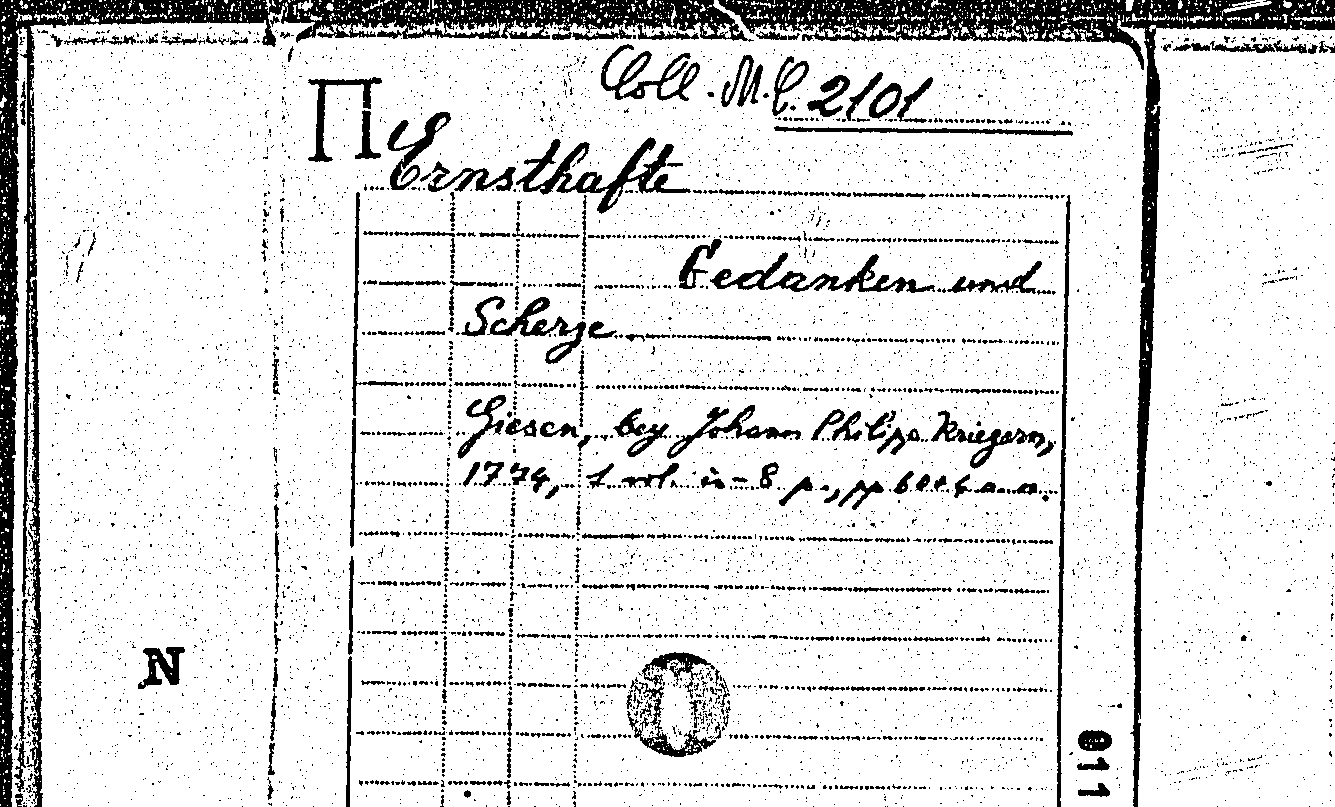 Coll. M. C. 2101
Π
Ernsthafte
Gedanken und
Scherze
Giesen, bey Johann Philipp Kriegern,
1774, 1 vol. in-8 p., pp 60+4 n. n.
N
011